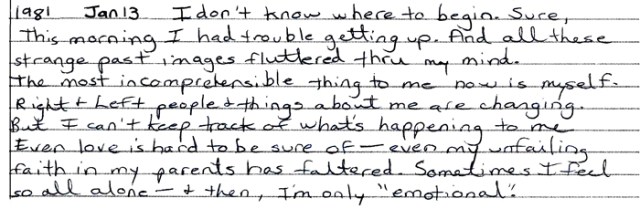 1981 Jan 13 I don't know where to begin. Sure,
This morning I had trouble getting up. And all these
strange past images fluttered thru my mind.
The most incomprehensible thing to me now is myself.
Right + Left people + things about me are changing.
But I can't keep track of what's happening to me
Even love is hard to be sure of — even my unfailing
faith in my parents has faltered. Sometimes I feel
so all alone — + then, I'm only "emotional".